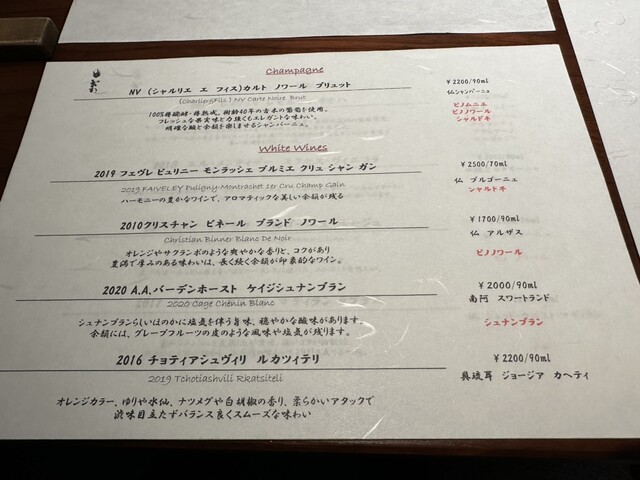 Champagne
NV (シャルリエ エ フィス)カルト ノワール ブリュット
￥2200/90ml
(Charlier&Fils) NV Carte Noire Brut
仏シャンパーニュ
100%樽醗酵・樽熟成。樹齢40年の古木の葡萄を使用。
フレッシュな果実味と力強くもエレガントな味わい。
明確な酸と余韻を楽しませるシャンパーニュ。
ピノムニエ
ピノノワール
シャルドネ
White Wines
2019 フェヴレ ピュリニー モンラッシェ プルミエ クリュ シャン ガン
￥2500/70ml
2019 FAIVELEY Puligny-Montrachet 1er Cru Champ Gain
仏 ブルゴーニュ
ハーモニーの豊かなワインで、アロマティックな美しい余韻が残る
シャルドネ
2010クリスチャン ビネール ブランド ノワール
￥1700/90ml
Christian Binner Blanc De Noir
仏 アルザス
オレンジやサフランボのような爽やかな香りと、コクがあり
豊潤で厚みのある味わいは、長く続く余韻が印象的なワイン。
ピノノワール
2020 A.A.バーデンホースト ケイジシュナンブラン
￥2000/90ml
2020 Cage Chenin Blanc
南阿 スワートランド
シュナンブランらしいほのかに塩気を伴う旨味、穏やかな酸味があります。
余韻には、グレープフルーツの皮のような風味や塩気が残ります。
シュナンブラン
2016 チョティアシュヴィリ ルカツィテリ
￥2200/90ml
2019 Tchotiashvili Rkatsiteli
具琉耳 ジョージア カヘティ
オレンジカラー、ゆりや水仙、ナツメグや白胡椒の香り、柔らかいアタックで
渋味目立たずバランス良くスムーズな味わい